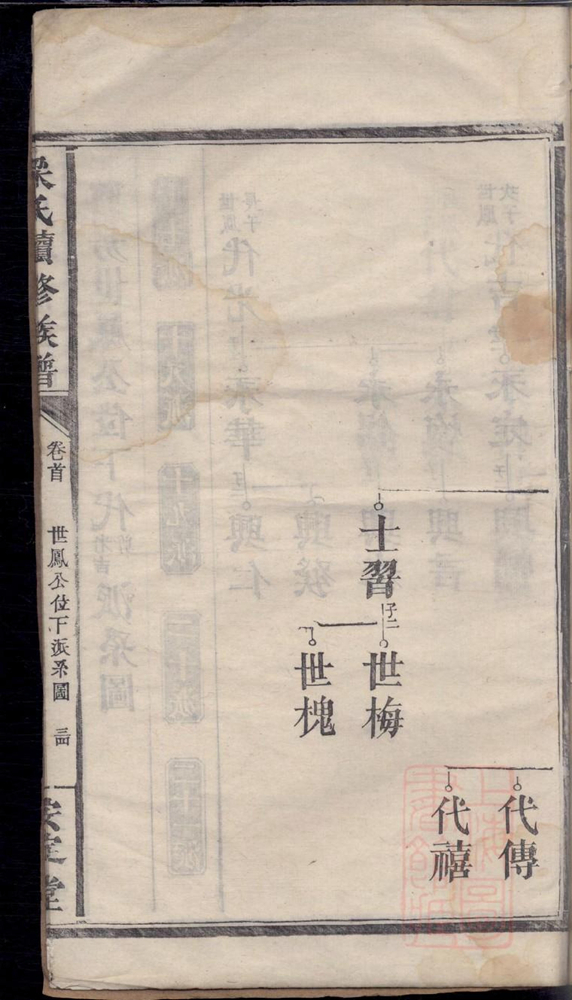 代傳
代禧
士習
子二
世梅
世槐
梁氏續修族譜
卷首
世鳳公位下派系圖
三四
安定堂